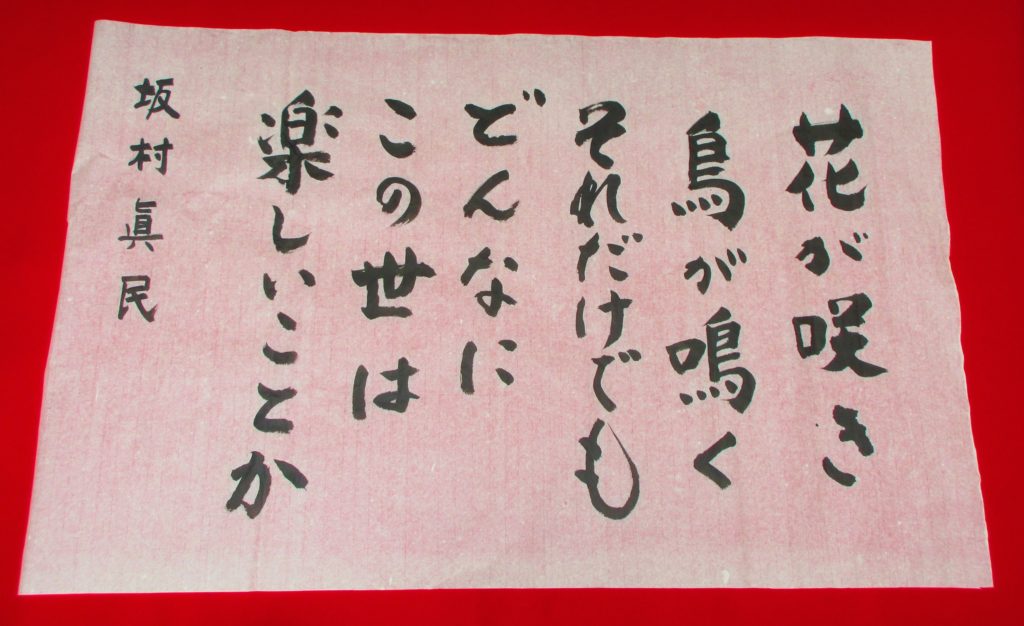 花が咲き
鳥が鳴く
それだけでも
どんなに
この世は
楽しいことか
坂村眞民